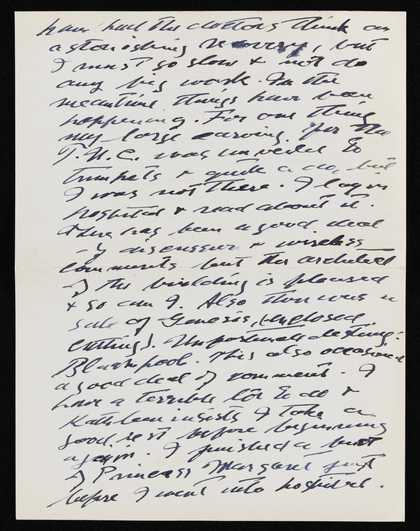 have had the doctors think an
astonishing recovery, but
I must go slow & not do
any big work. In the
meantime things have been
happening. For one thing
my large carving for the
T.U.C. was unveiled to
trumpets & quite a do, but
I was not there. I lay in
hospital & read about it.
There has been a good deal
of discussion & wireless
comments but the architect
of the building is pleased
& so am I. Also there was a
sale of Genesis, (enclosed
cutting). Unfortunate
Blackpool. This also occasioned
a good deal of comment. I
have a terrible lot to do &
Kathleen insists I take a
good rest before beginning
again. I finished a bust
of Princess Margaret just
before I went into hospital.